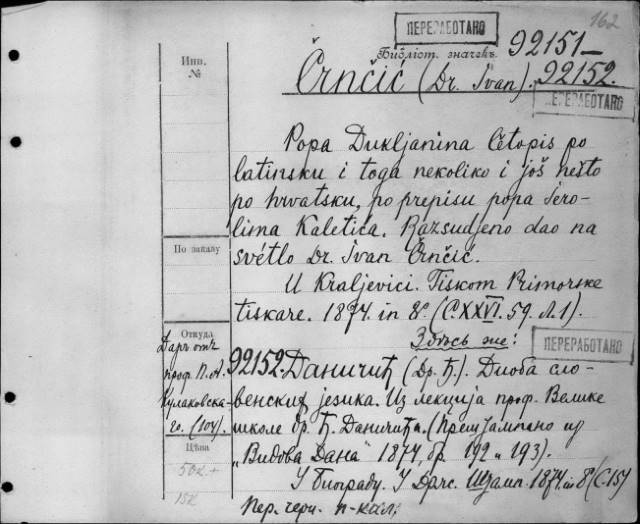 162
ПЕРЕРАБОТАНО
Библіот. значекъ.
92151—
92152.
Инв.
№
Črnčić (Dr. Ivan).
ПЕРЕРАБОТАНО
Popa Dukljanina lětopis po
latinsku i toga nekoliko i još nešto
po hrvatsku, po prepisu popa Jero-
lima Kaletića. Razsudjeno dao na
svétlo Dr. Ivan Črnčić.
По заказу
U Kraljevici. Tiskom Primorske
tiskare. 1874. in 8º. (C. XXVI. 59. Л. 1).
Здѣсь же:
ПЕРЕРАБОТАНО
Откуда
Даръ отъ
проф. П. А.
Кулаковска-
го. (104).
92152. Даничић (Др. Ђ.). Диоба сло-
венских језика. Из лекција проф. Велике
школе др. Ђ. Даничића. (Прештампано из
„Видова Дана" 1874, бр. 192 и 193).
Цѣна
50к.+
15к
У Биограду. У Држ. Штамп. 1874. in 8º (C. 15)
Пер. черн. п-кал.